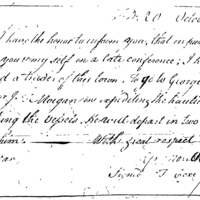 20 Octob
I have the honor to inform you, that in pur
you & my self in a late conference; I h
d a trader of this town. To go to George
r J. Morgan in expediting the hauling
ing the vessels. He will depart in two
him. With great respect
Signed T